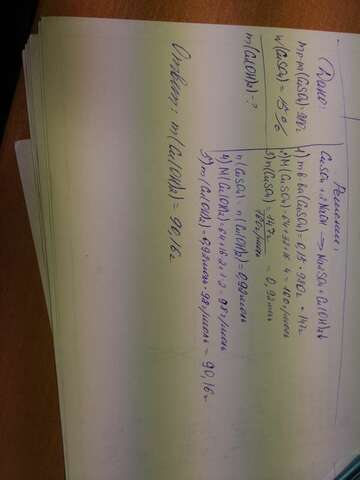 Дано:
mр-ра(CuSO4) = 980г
w(CuSO4) = 15%
m(Cu(OH)2) - ?
Решение:
CuSO4 + 2NaOH → Na2SO4 + Cu(OH)2↓
1) mв-ва(CuSO4) = 0,15 · 980г = 147г
2) M(CuSO4) = 64+32+16·4 = 160г/моль
3) n(CuSO4) = 147г / 160г/моль = 0,92моль
n(CuSO4) = n(Cu(OH)2) = 0,92моль
4) M(Cu(OH)2) = 64+16·2+1·2 = 98г/моль
5) m(Cu(OH)2) = 0,92моль · 98г/моль = 90,16г
Ответ: m(Cu(OH)2) = 90,16г